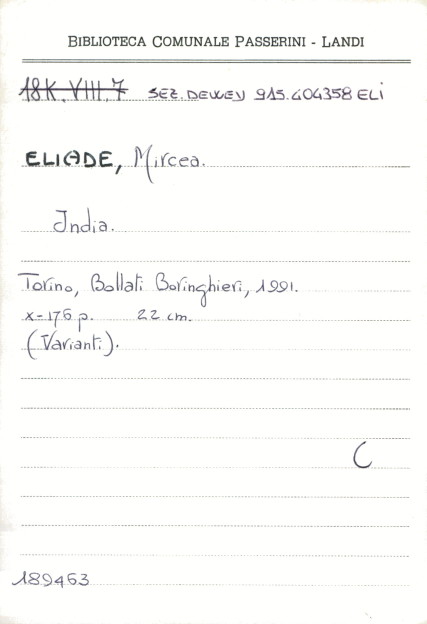 BIBLIOTECA COMUNALE PASSERINI - LANDI
18K.VIII.7 SEZ. DEWEY 915.404358 ELI
ELIADE, Mircea.
India.
Torino, Bollati Boringhieri, 1991.
x-176 p. 22 cm.
(Varianti).
C
189463